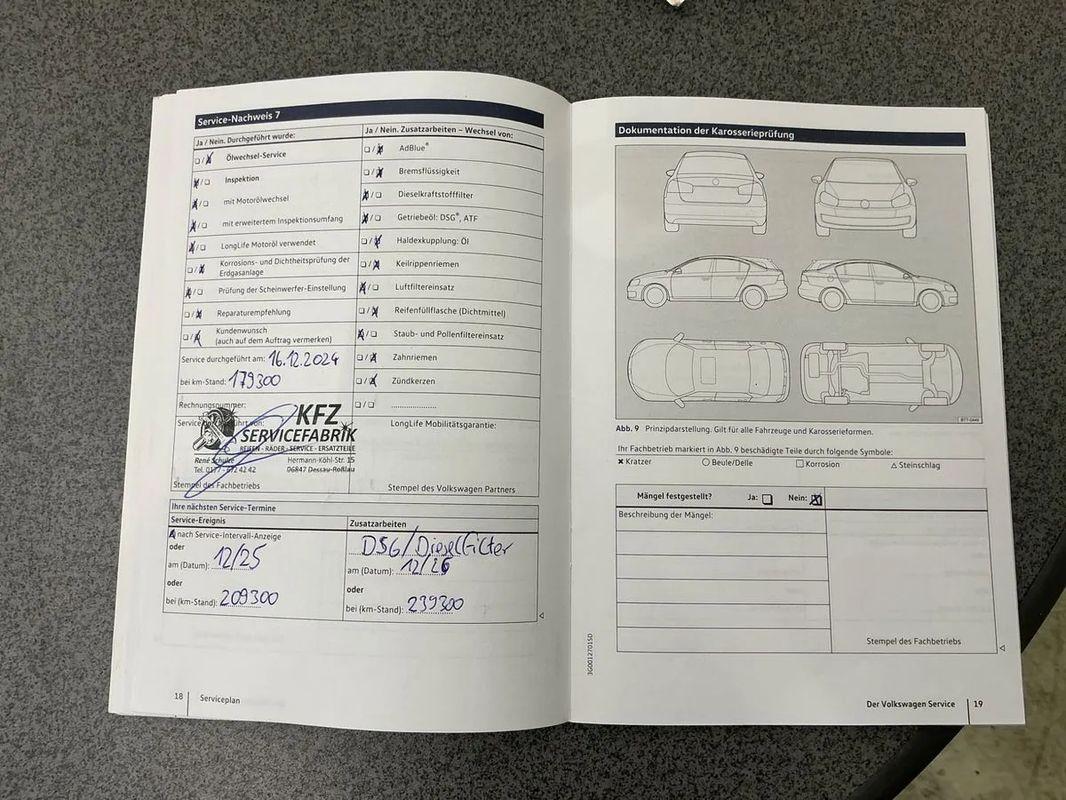 Service-Nachweis 7
Ja / Nein. Durchgeführt wurde:
Ölwechsel-Service
Inspektion
mit Motorölwechsel
mit erweitertem Inspektionsumfang
LongLife Motoröl verwendet
Korrosions- und Dichtheitsprüfung der
Erdgasanlage
Prüfung der Scheinwerfer-Einstellung
Reparaturempfehlung
Kundenwunsch
(auch auf dem Auftrag vermerken)
Service durchgeführt am: 16.12.2024
bei km-Stand: 179300
Rechnungsnummer:
Service durchgeführt von:
KFZ
SERVICEFABRIK
REIFEN - RÄDER - SERVICE - ERSATZTEILE
René Schulze Hermann-Köhl-Str. 15
Tel. 0177 - 472 42 42 06847 Dessau-Roßlau
Stempel des Fachbetriebs
Ja / Nein. Zusatzarbeiten – Wechsel von:
AdBlue®
Bremsflüssigkeit
Dieselkraftstofffilter
Getriebeöl: DSG®, ATF
Haldexkupplung: Öl
Keilrippenriemen
Luftfiltereinsatz
Reifenfüllflasche (Dichtmittel)
Staub- und Pollenfiltereinsatz
Zahnriemen
Zündkerzen
LongLife Mobilitätsgarantie:
Stempel des Volkswagen Partners
Ihre nächsten Service-Termine
Service-Ereignis
nach Service-Intervall-Anzeige
oder
am (Datum): 12/25
oder
bei (km-Stand): 209300
Zusatzarbeiten
DSG/Dieselfilter
am (Datum): 12/26
oder
bei (km-Stand): 239300
18 Serviceplan
Dokumentation der Karosserieprüfung
BTT-0449
Abb. 9 Prinzipdarstellung. Gilt für alle Fahrzeuge und Karosserieformen.
Ihr Fachbetrieb markiert in Abb. 9 beschädigte Teile durch folgende Symbole:
Kratzer Beule/Delle Korrosion Steinschlag
Mängel festgestellt? Ja: Nein:
Beschreibung der Mängel:
Stempel des Fachbetriebs
3G0012701SD
Der Volkswagen Service 19